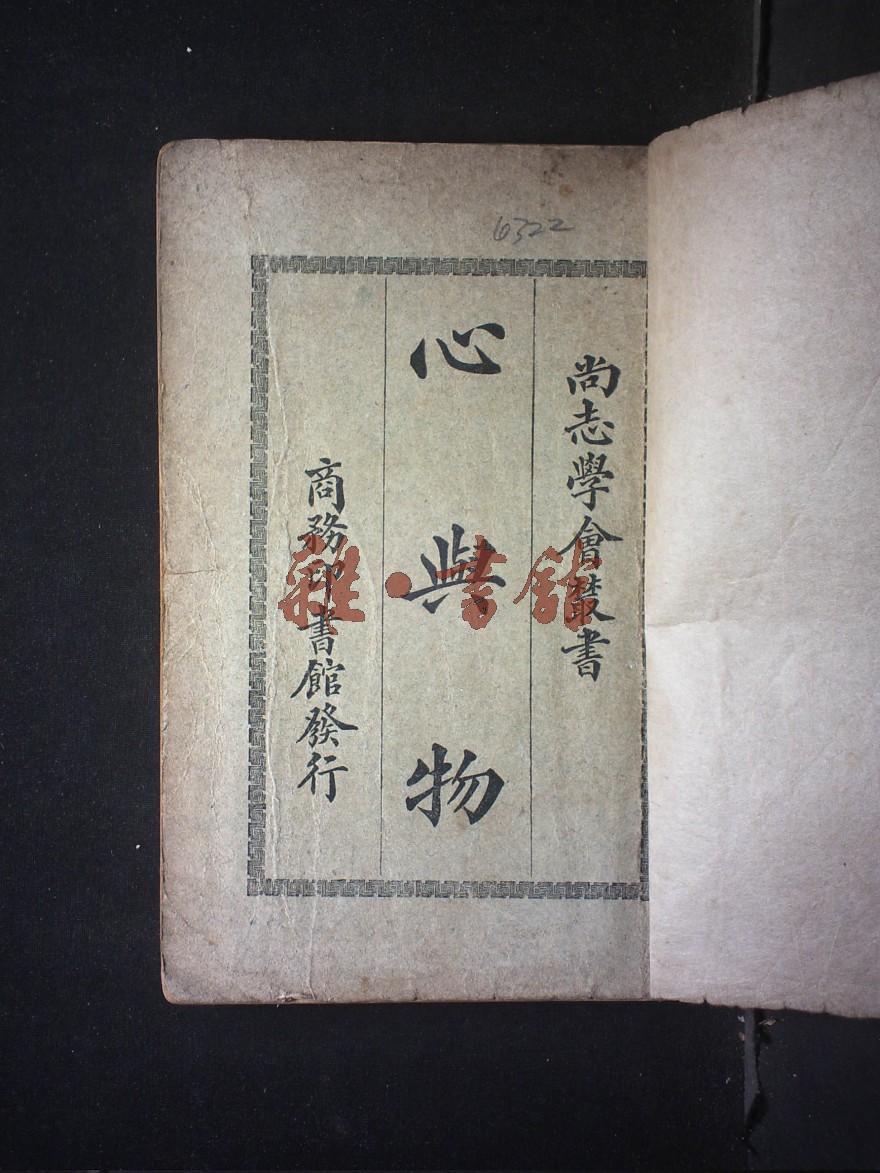 6322
尚志學會叢書
心與物
商務印書館發行
雜·書館